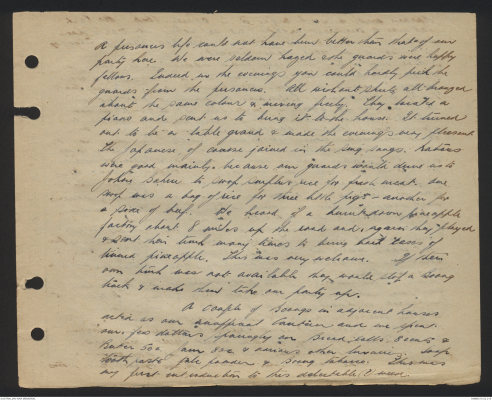 A prisoners life could not have been better than that of our
party here. We were seldom haged & the guards were happy
fellows. Indeed in the evenings you could hardly pick the
guards from the prisoners. All without shirts all bronzed
about the same colour & mixing freely. They located a
piano and sent us to bring it to the house. It turned
out to be a table grand & made the evenings very pleasant.
The Japanese of course joined in the sing songs. Rations
were good mainly because our guards would drive us to
Johore Bahru to swop surplus rice for fresh meat. One
swop was a bag of rice for three little pigs - another for
a side of beef. We heard of a pineapple
factory about 8 miles up the road and again they played
& sent their truck many times to bring back cases of
tinned pineapple. This was very welcome. If their
own truck was not available they would stop a
truck & make them take our party up.
A couple of in adjacent houses
acted as our unofficial canteen and we spent
our few dollars on bread rolls. 8 cents &
Butter 50c jam 80c & various other luxuries. Soap
tooth paste & tobacco. This was
my first introduction to this delectable weed.